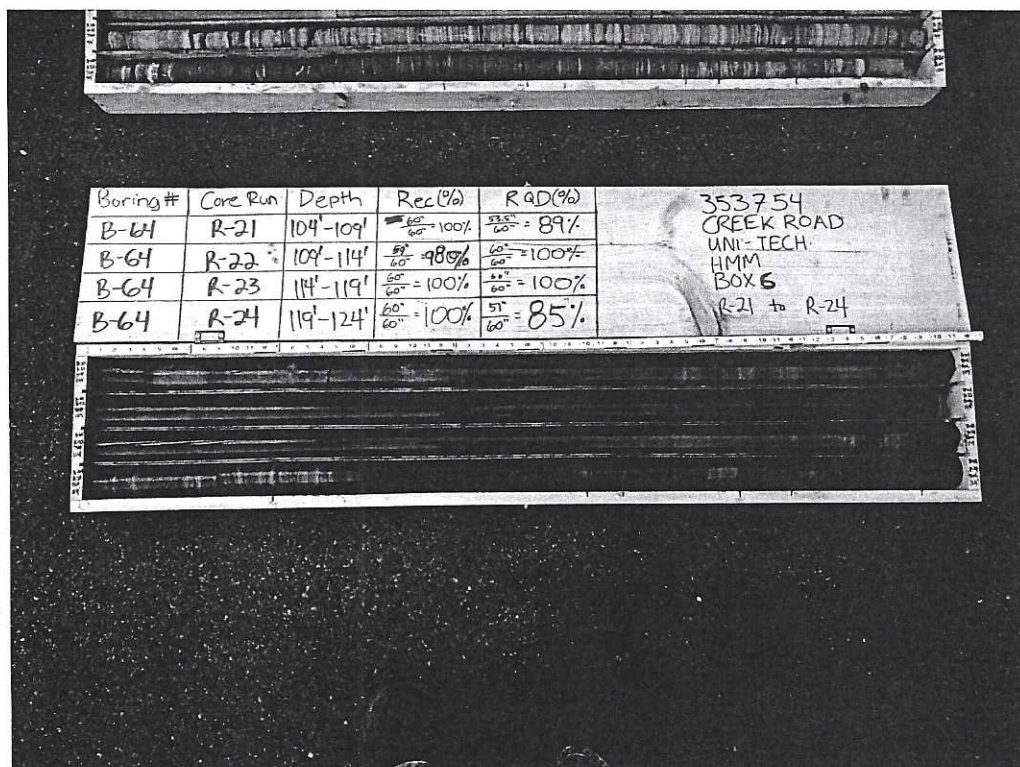 Boring # Core Run Depth Rec(%) RQD(%)
B-64 R-21 104'-109' 60"/60" = 100% 53.5"/60" = 89%
B-64 R-22 109'-114' 59"/60" = 98% 60"/60" = 100%
B-64 R-23 114'-119' 60"/60" = 100% 60"/60" = 100%
B-64 R-24 119'-124' 60"/60" = 100% 51"/60" = 85%
353754
CREEK ROAD
UNI-TECH
HMM
BOX 6
R-21 to R-24